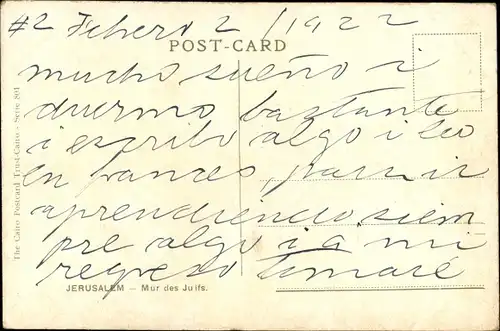 #2 Febero 2 / 1922
POST-CARD
mucho sueño i
duermo baztante
i escribo algo i leo
en rances, para ir
aprendiendo siem
pre algo i a mi
regreso tomaré
JERUSALEM – Mur des Juifs.
The Cairo Postcard Trust-Cairo - Serie 801